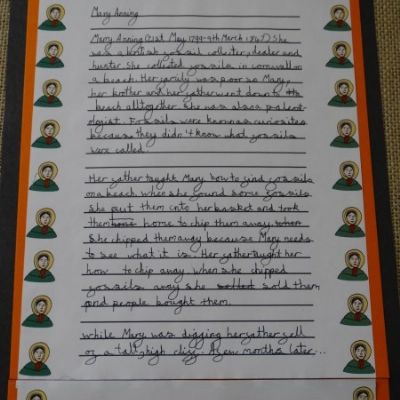 Mary Anning
Mary Anning (21st May 1799-9th March 1847) She
was a british fossil colleter, dealer and
hunter. She collected fossils in cornwall on
a beach. Her family was poor so Mary,
her brother and her father went down to the
beach alltogether she was also a paleont-
ologist. Fossils were known as curiosities
because they didn't know what fossils
were called.
Her father taught Mary how to find fossils
on a beach when she found some fossils
she put them into her basket and took
them home home to chip them away. when
She chipped them away because Mary needs
to see what it is. Her father taught her
how to chip away. when she chipped
fossils away she sold them
and people bought them.
while Mary was digging her father fell
of a tall, high cliff. A few months later...